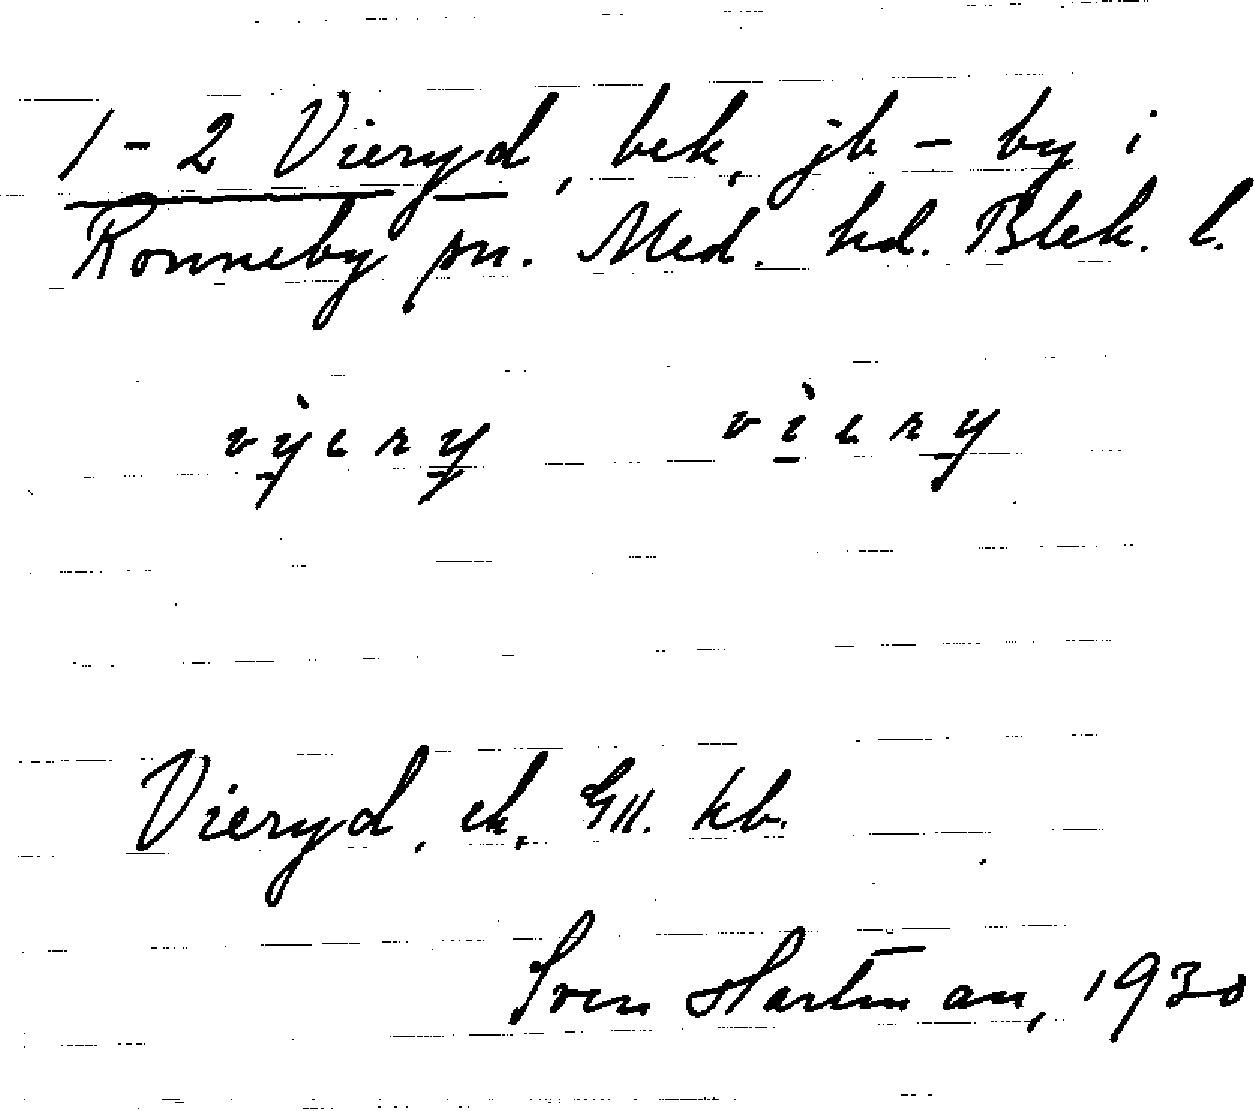 1-2 Vieryd, bek, jb-by i
Ronneby sn. Med. hd. Blek. l.
Vieryd, ek, Gll. kb.
Sven Hartman, 1930